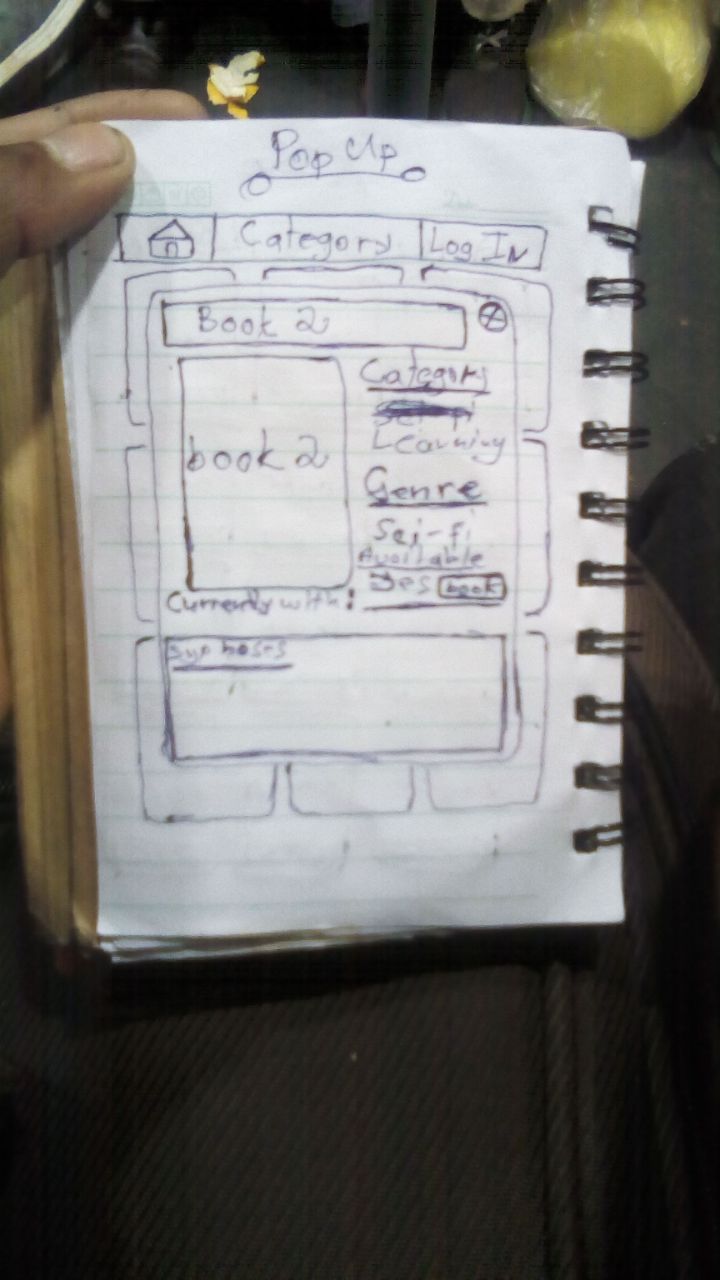 Pop Up
Category
Log In
Book 2
book 2
Category
Sci-fi
Learning
Genre
Sci-fi
Available
Yes
book
Currently with: